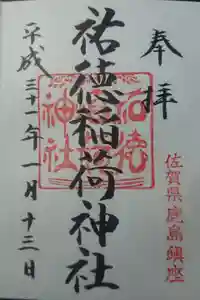 奉拝
佐賀県鹿島鎮座
祐徳稲荷神社
祐徳
神社
平成三十一年一月十三日